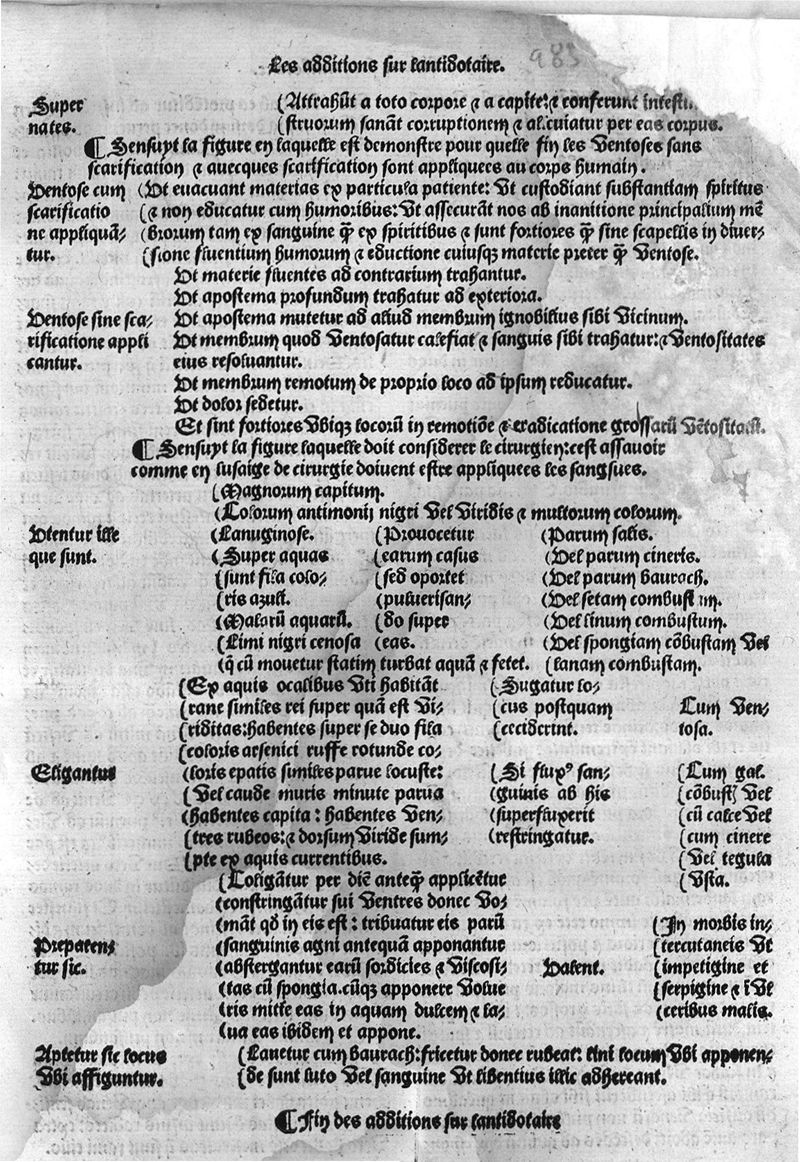 Les additions sur lantidotaire.
983
Super (Attrahūt a toto corpore ⁊ a capite:⁊ conferunt intesti
nates. (struorum sanāt corruptionem ⁊ alcuiatur per eas corpus.
¶ Sensuyt la figure en laquelle est demonstre pour quelle fin les Ventoses sans
scarification ⁊ auecques scarification sont appliquees au corps humain.
Ventose cum (Vt euacuant materias ex particula patiente: Vt custodiant substantiam spiritus
scarificatio (⁊ non educatur cum humoribus: Vt assecurāt nos ab inanitione principalium mē
ne appliquā- (brorum tam ex sanguine q̄̃ ex spiritibus ⁊ sunt fortiores q̄̃ sine scapellis in diuer-
tur. (sione fluentium humorum ⁊ eductione cuiusqꝫ materie preter q̄̃ Ventose.
Vt materie fluentes ad contrarium trahantur.
Vt apostema profundum trahatur ad exteriora.
Ventose sine sca- Vt apostema mutetur ad aliud membrum ignobilius sibi Vicinum.
rificatione appli Vt membrum quod Ventosatur calefiat ⁊ sanguis sibi trahatur:⁊ Ventositates
cantur. eius resoluantur.
Vt membrum remotum de proprio loco ad ipsum reducatur.
Vt dolor sedetur.
Et sint fortiores Vbiqꝫ locorū in remotiōe ⁊ eradicatione grossarū Vētositatū.
¶ Sensuyt la figure laquelle doit considerer le cirurgien:cest assauoir
comme en lusaige de cirurgie doiuent estre appliquees les sangsues.
(Magnorum capitum.
(Colorum antimonij nigri Vel Viridis ⁊ multorum colorum.
Vtentur ille (Lanuginose. (Prouocetur (Parum salis.
que sunt. (Super aquas (earum casus (Vel parum cineris.
(sunt fila colo- (sed oportet (Vel parum baurach.
(ris azuli. (puluerisan- (Vel setam combustam.
(Malarū aquarū. (do super (Vel linum combustum.
(Limi nigri cenosa (eas. (Vel spongiam cōbustam Vel
(q̄ cū mouetur statim turbat aquā ⁊ fetet. (lanam combustam.
(Ex aquis ocalibus Vti habitāt (Sugatur lo-
(rane similes rei super quā est Vi- (cus postquam Cum Ven-
(riditas:habentes super se duo fila (ceciderint. tosa.
(coloris arsenici ruffe rotunde co-
Eligantur (loris epatis similes parue locuste: (Si fluxꝰ san- (Cum gal.
(Vel caude muris minute parua (guinis ab his (cōbust Vel
(habentes capita: habentes Ven- (superfluxerit (cū calce Vel
(tres rubeos:⁊ dorsum Viride sum- (restringatur. (cum cinere
(pte ex aquis currentibus. (Vel tegula
(Coligātur per diē anteq̄̃ applicētur (Vsta.
(constringātur sui Ventres donec Vo-
(māt qd̄ in eis est: tribuatur eis parū (In morbis in-
Preparen- (sanguinis agni antequā apponantur (tercutaneis Vt
tur sic. (abstergantur earū sordicies ⁊ Viscosi- Valent. (impetigine et
(tas cū spongia.cūqꝫ apponere Volue (serpigine ⁊ ī Vl
(ris mitte eas in aquam dulcem ⁊ la- (ceribus malis.
(ua eas ibidem et appone.
Aptetur sic locus (Lauetur cum baurach:fricetur donec rubeat: lini locum Vbi apponen-
Vbi affiguntur. (de sunt luto Vel sanguine Vt libentius illic adhereant.
¶ Fin des additions sur lantidotaire